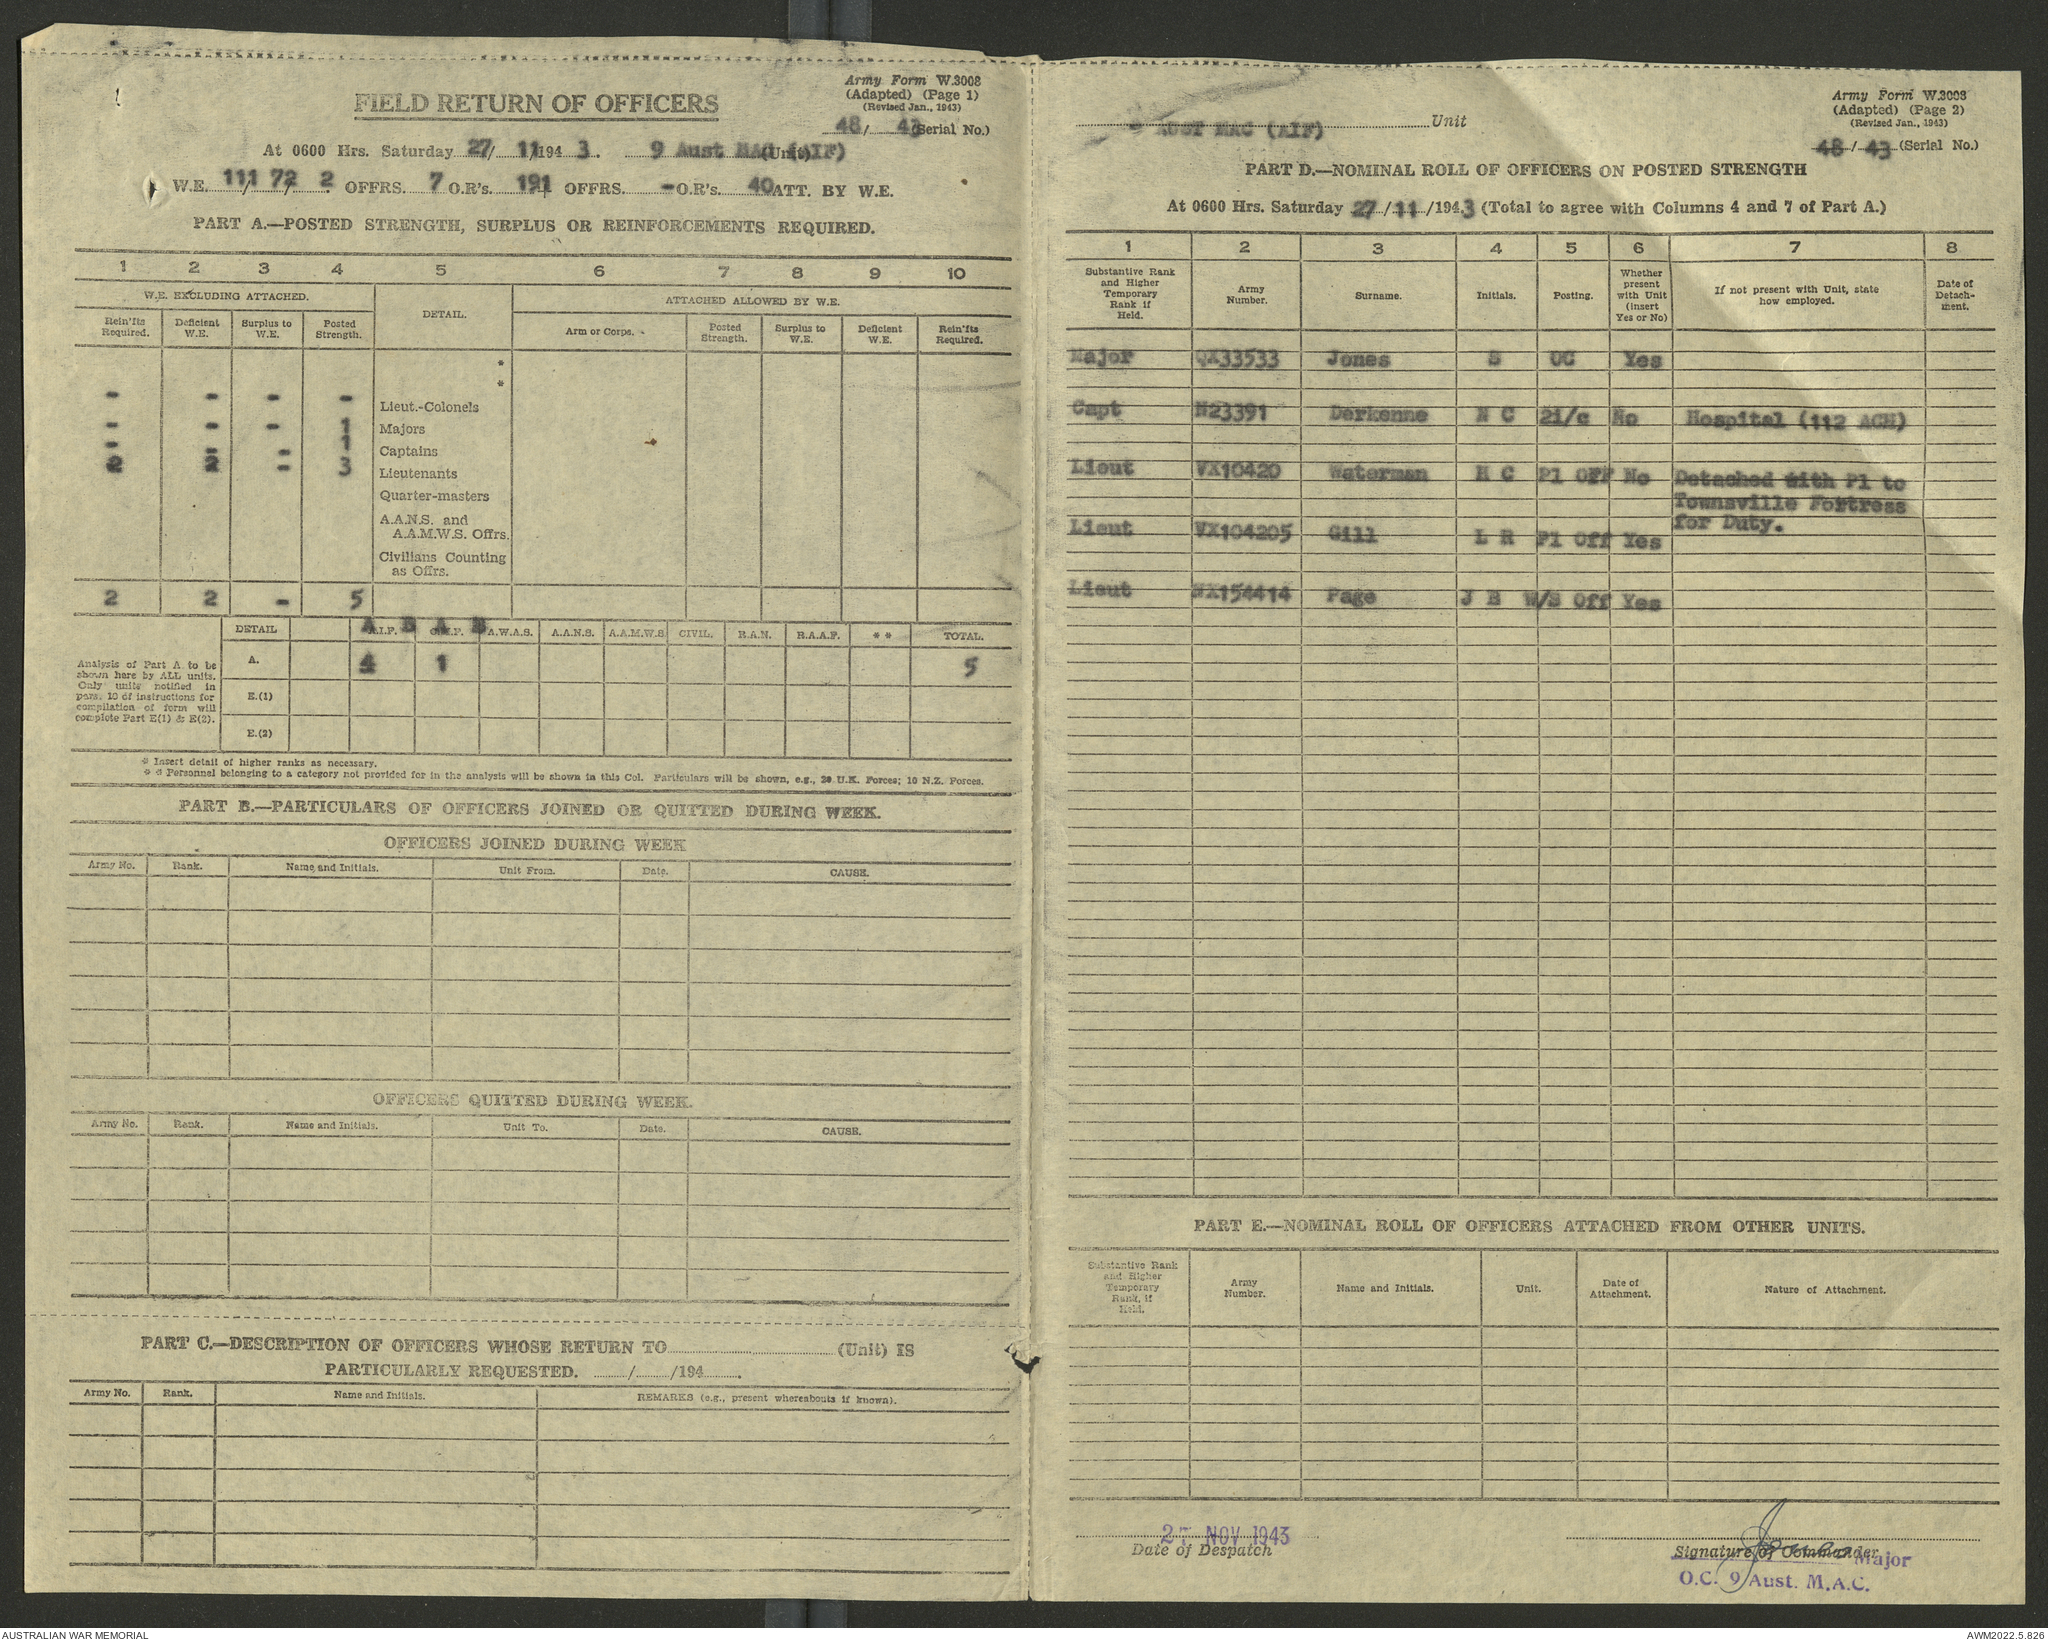 Army Form W.3008
(Adapted) (Page 1)
(Revised Jan., 1943)
FIELD RETURN OF OFFICERS
48/ 43 (Serial No.)
At 0600 Hrs. Saturday 27/ 11/194 3. 9 Aust MAC (AIF) (Unit)
W.E. 111/ 72/ 2 OFFRS. 7 O.R's. 191 OFFRS. - O.R's. 40 ATT. BY W.E.
PART A.—POSTED STRENGTH, SURPLUS OR REINFORCEMENTS REQUIRED.
1 2 3 4 5 6 7 8 9 10
W.E. EXCLUDING ATTACHED. DETAIL. ATTACHED ALLOWED BY W.E.
Rein'fts Required. Deficient W.E. Surplus to W.E. Posted Strength. Arm or Corps. Posted Strength. Surplus to W.E. Deficient W.E. Rein'fts Required.
*
*
- - - - Lieut.-Colonels
- - - 1 Majors
- - - 1 Captains
2 2 - 3 Lieutenants
Quarter-masters
A.A.N.S. and
A.A.M.W.S. Offrs.
Civilians Counting
as Offrs.
2 2 - 5
DETAIL A A.I.F. B A C.M.F. B A.W.A.S. A.A.N.S. A.A.M.W.S CIVIL. R.A.N. R.A.A.F. * * TOTAL.
A. 4 1 5
E.(1)
E.(2)
Analysis of Part A to be
shown here by ALL units.
Only units notified in
para. 10 of instructions for
compilation of form will
complete Part E(1) & E(2).
* Insert detail of higher ranks as necessary.
* * Personnel belonging to a category not provided for in the analysis will be shown in this Col. Particulars will be shown, e.g., 20 U.K. Forces; 10 N.Z. Forces.
PART B.—PARTICULARS OF OFFICERS JOINED OR QUITTED DURING WEEK.
OFFICERS JOINED DURING WEEK
Army No. Rank. Name and Initials. Unit From. Date. CAUSE.
OFFICERS QUITTED DURING WEEK.
Army No. Rank. Name and Initials. Unit To. Date. CAUSE.
PART C.—DESCRIPTION OF OFFICERS WHOSE RETURN TO (Unit) IS
PARTICULARLY REQUESTED. / /194 .
Army No. Rank. Name and Initials. REMARKS (e.g., present whereabouts if known).
Army Form W.3008
(Adapted) (Page 2)
(Revised Jan., 1943)
AUST MAC (AIF) Unit
48/ 43 (Serial No.)
PART D.—NOMINAL ROLL OF OFFICERS ON POSTED STRENGTH
At 0600 Hrs. Saturday 27/11/194 3 (Total to agree with Columns 4 and 7 of Part A.)
1 2 3 4 5 6 7 8
Substantive Rank and Higher Temporary Rank if Held. Army Number. Surname. Initials. Posting. Whether present with Unit (insert Yes or No) If not present with Unit, state how employed. Date of Detachment.
Major QX33533 Jones S OC Yes
Capt N23391 Derkenne N C 2i/c No Hospital (112 ACH)
Lieut VX10420 Waterman H C Pl Off No Detached with Pl to
Townsville Fortress
for Duty.
Lieut VX104205 Gill L R Pl Off Yes
Lieut NX154414 Page J B W/S Off Yes
PART E.—NOMINAL ROLL OF OFFICERS ATTACHED FROM OTHER UNITS.
Substantive Rank and Higher Temporary Rank, if Held. Army Number. Name and Initials. Unit. Date of Attachment. Nature of Attachment.
27 NOV 1943
Date of Despatch
Jones
Signature of Commander Major
O.C. 9 Aust. M.A.C.
AUSTRALIAN WAR MEMORIAL
AWM2022.5.826